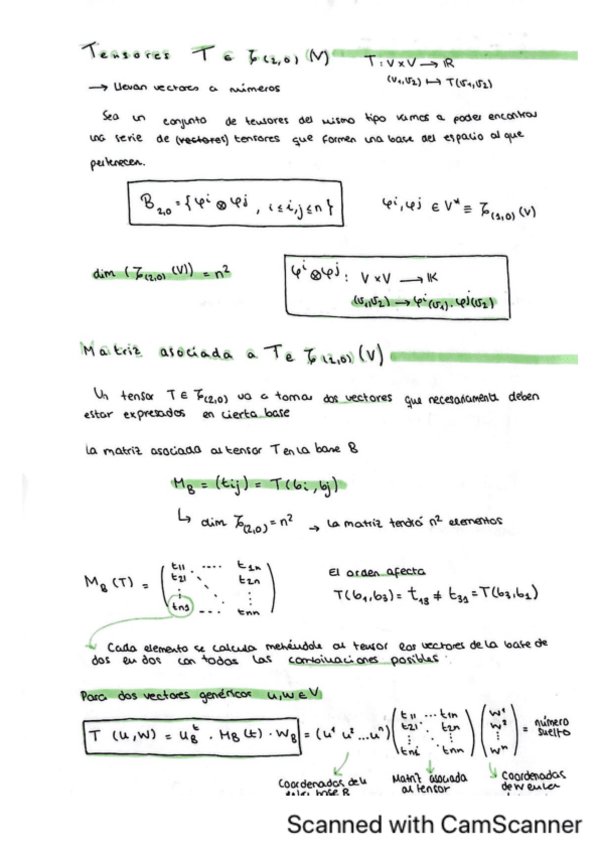 Tensores T ∈ 𝒯(2,0) (V)
T : V x V → IR
(v1,v2) ↦ T(v1,v2)
→ llevan vectores a números
Sea un conjunto de tensores del mismo tipo vamos a poder encontrar
una serie de (vectores) tensores que formen una base del espacio al que
pertenecen.
B2,0 = { φi ⊗ φj , 1≤i,j≤n }
φi, φj ∈ V* ≡ 𝒯(1,0) (V)
dim (𝒯(2,0) (V)) = n²
φi⊗φj : V x V → IK
(v1,v2) → φi(v1)·φj(v2)
Matriz asociada a T ∈ 𝒯(2,0) (V)
Un tensor T ∈ 𝒯(2,0) va a tomar dos vectores que necesariamente deben
estar expresados en cierta base
La matriz asociada al tensor T en la base B
MB = (tij) = T(bi, bj)
↳ dim 𝒯(2,0) = n² → La matriz tendrá n² elementos
MB (T) = ( t11 .... t1n
t21 t2n
tn1 ... tnn )
El orden afecta
T(b1,b3) = t13 ≠ t31 = T(b3,b1)
Cada elemento se calcula metiéndole al tensor los vectores de la base de
dos en dos con todas las combinaciones posibles.
Para dos vectores genéricos u,w ∈ V
T (u,w) = uBt . MB (t) . wB = (u1 u2 ... un) ( t11 ... t1n
t21 t2n
tn1 ... tnn ) ( w1
w2
wn ) = número
suelto
Coordenadas de u
base B
Matriz asociada
al tensor
Coordenadas
de w en la
Scanned with CamScanner